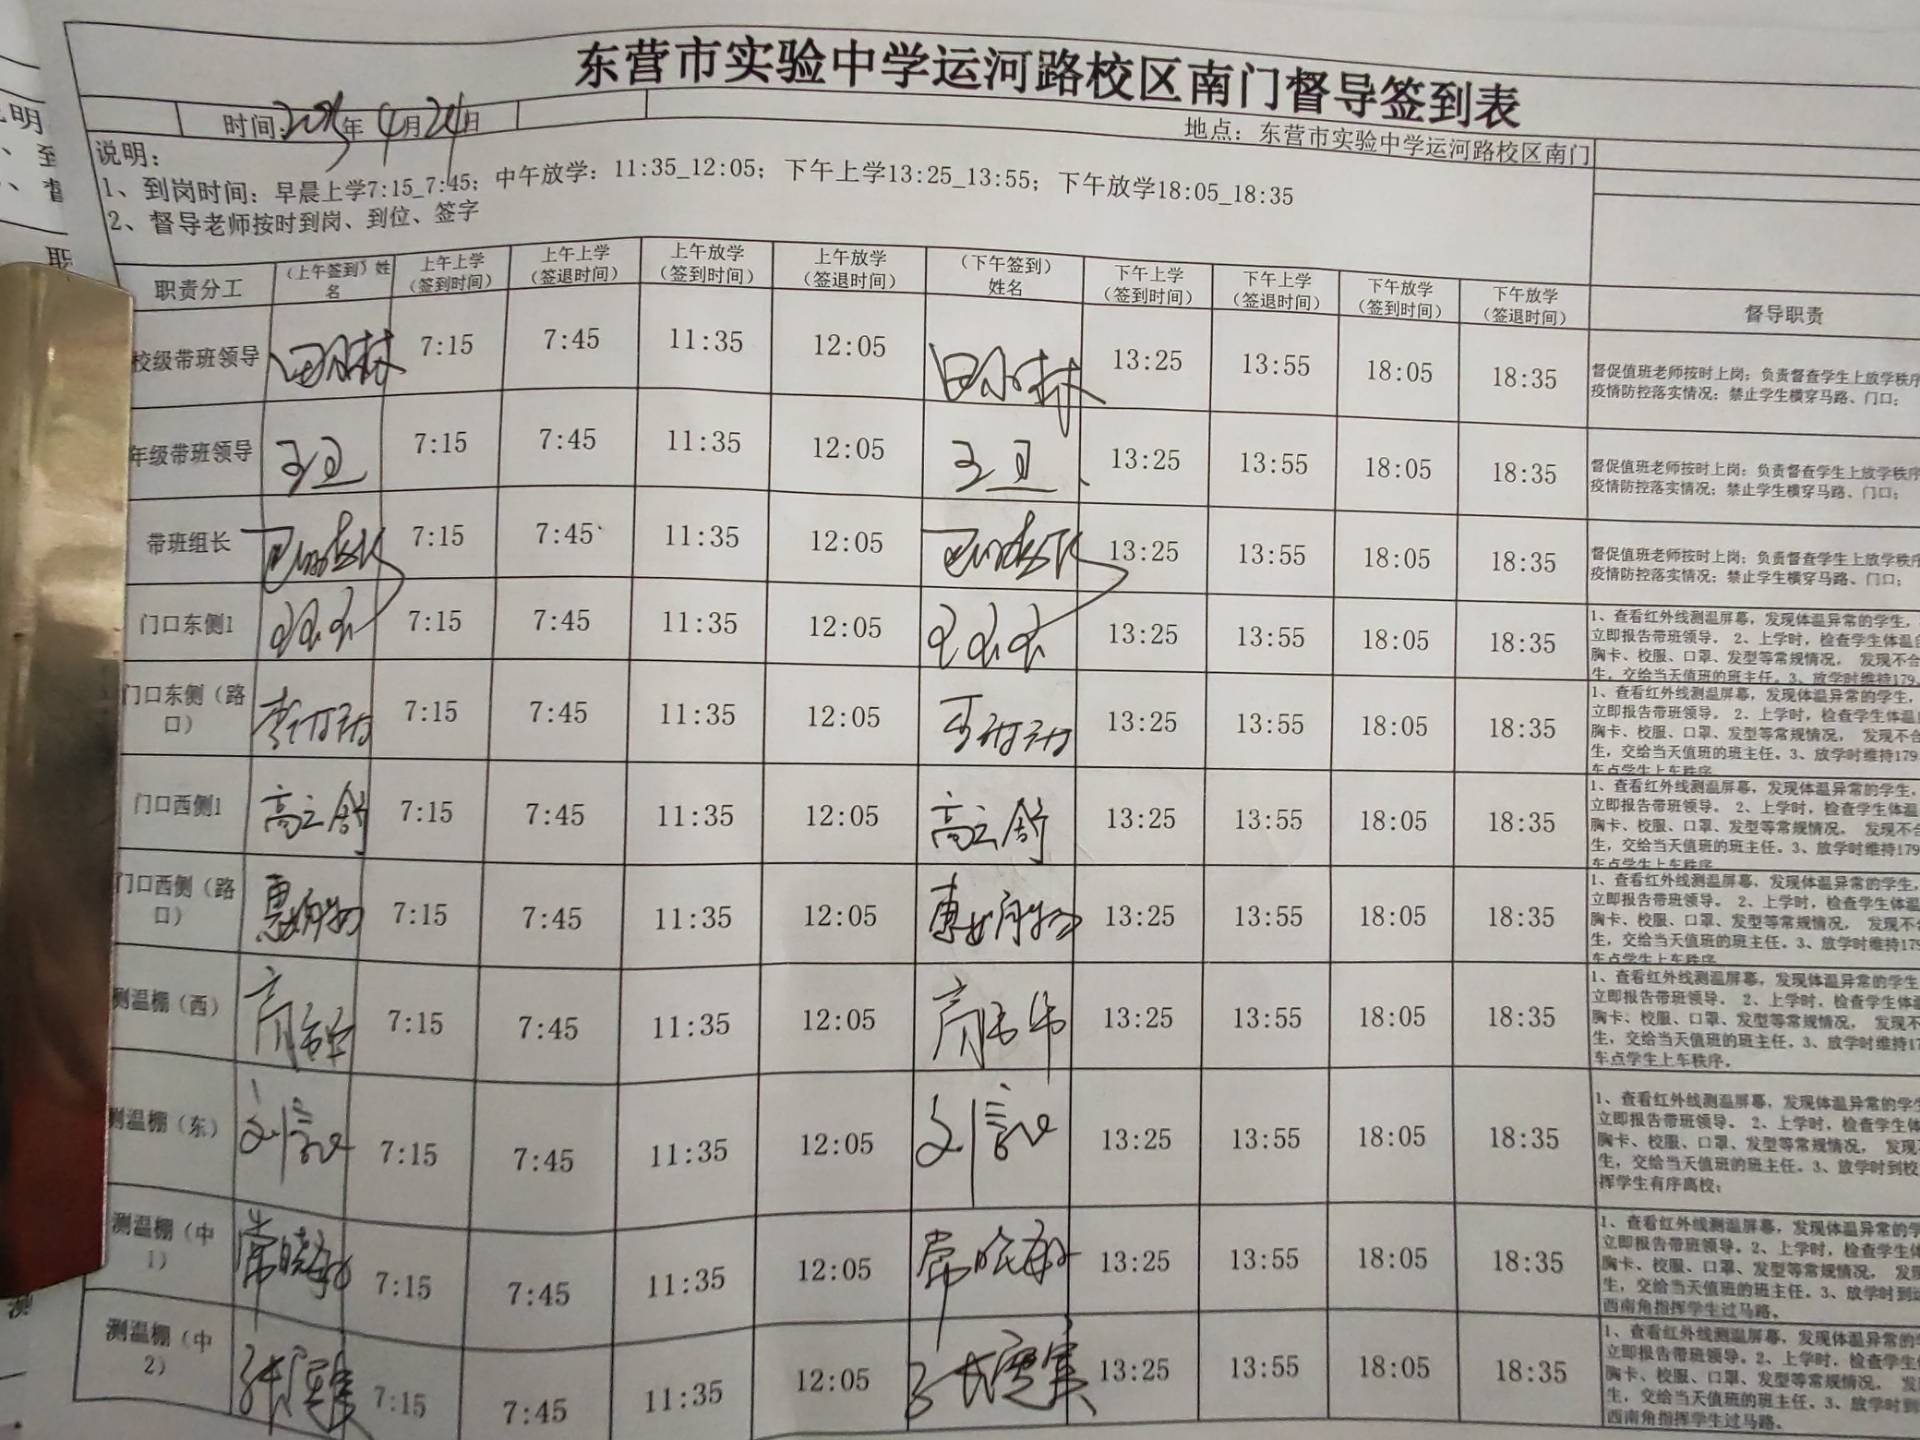 东营市实验中学运河路校区南门督导签到表
时间: 年 4月24日
地点：东营市实验中学运河路校区南门
说明：
1、到岗时间：早晨上学7:15_7:45；中午放学：11:35_12:05；下午上学13:25_13:55；下午放学18:05_18:35
2、督导老师按时到岗、到位、签字
职责分工 （上午签到）姓名 上午上学（签到时间） 上午上学（签退时间） 上午放学（签到时间） 上午放学（签退时间） （下午签到）姓名 下午上学（签到时间） 下午上学（签退时间） 下午放学（签到时间） 下午放学（签退时间） 督导职责
校级带班领导 7:15 7:45 11:35 12:05 13:25 13:55 18:05 18:35
督促值班老师按时上岗；负责督查学生上放学秩序
疫情防控落实情况；禁止学生横穿马路、门口；
年级带班领导 王卫 7:15 7:45 11:35 12:05 王卫 13:25 13:55 18:05 18:35
督促值班老师按时上岗；负责督查学生上放学秩序
疫情防控落实情况；禁止学生横穿马路、门口；
带班组长 7:15 7:45 11:35 12:05 13:25 13:55 18:05 18:35
督促值班老师按时上岗；负责督查学生上放学秩序
疫情防控落实情况；禁止学生横穿马路、门口；
门口东侧1 7:15 7:45 11:35 12:05 13:25 13:55 18:05 18:35
1、查看红外线测温屏幕，发现体温异常的学生，
立即报告带班领导。 2、上学时，检查学生体温
胸卡、校服、口罩、发型等常规情况， 发现不合
生，交给当天值班的班主任。3、放学时维持179
门口东侧（路口） 7:15 7:45 11:35 12:05 13:25 13:55 18:05 18:35
1、查看红外线测温屏幕，发现体温异常的学生，
立即报告带班领导。 2、上学时，检查学生体温
胸卡、校服、口罩、发型等常规情况， 发现不合
生，交给当天值班的班主任。3、放学时维持179
车点学生上车秩序
门口西侧1 高立舒 7:15 7:45 11:35 12:05 高立舒 13:25 13:55 18:05 18:35
1、查看红外线测温屏幕，发现体温异常的学生，
立即报告带班领导。 2、上学时，检查学生体温
胸卡、校服、口罩、发型等常规情况， 发现不合
生，交给当天值班的班主任。3、放学时维持179
车点学生上车秩序
门口西侧（路口） 7:15 7:45 11:35 12:05 13:25 13:55 18:05 18:35
1、查看红外线测温屏幕，发现体温异常的学生，
立即报告带班领导。 2、上学时，检查学生体温
胸卡、校服、口罩、发型等常规情况， 发现不
生，交给当天值班的班主任。3、放学时维持179
车点学生上车秩序
测温棚（西） 7:15 7:45 11:35 12:05 13:25 13:55 18:05 18:35
1、查看红外线测温屏幕，发现体温异常的学生
立即报告带班领导。 2、上学时，检查学生体
胸卡、校服、口罩、发型等常规情况， 发现不
生，交给当天值班的班主任。3、放学时维持17
车点学生上车秩序。
测温棚（东） 7:15 7:45 11:35 12:05 13:25 13:55 18:05 18:35
1、查看红外线测温屏幕，发现体温异常的学生
立即报告带班领导。 2、上学时，检查学生体
胸卡、校服、口罩、发型等常规情况， 发现
生，交给当天值班的班主任。3、放学时到校
挥学生有序离校；
测温棚（中1） 7:15 7:45 11:35 12:05 13:25 13:55 18:05 18:35
1、查看红外线测温屏幕，发现体温异常的学
立即报告带班领导。2、上学时，检查学生体
胸卡、校服、口罩、发型等常规情况， 发现
生，交给当天值班的班主任。3、放学时到
西南角指挥学生过马路。
测温棚（中2） 7:15 7:45 11:35 12:05 13:25 13:55 18:05 18:35
1、查看红外线测温屏幕，发现体温异常的学
立即报告带班领导。2、上学时，检查学生
胸卡、校服、口罩、发型等常规情况，
生，交给当天值班的班主任。3、放学时到
西南角指挥学生过马路。